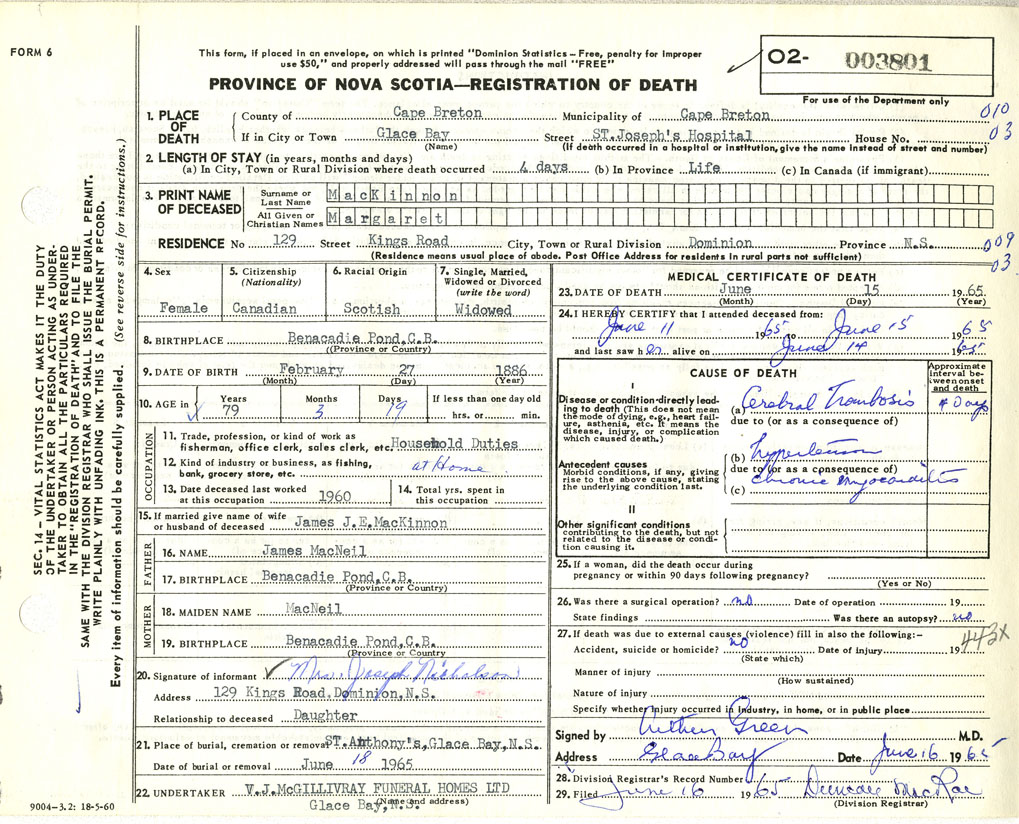 FORM 6
This form, if placed in an envelope, on which is printed "Dominion Statistics – Free, penalty for improper
use $50," and properly addressed will pass through the mail "FREE"
O2- 003801
For use of the Department only
PROVINCE OF NOVA SCOTIA—REGISTRATION OF DEATH
SEC. 14 – VITAL STATISTICS ACT MAKES IT THE DUTY
OF THE UNDERTAKER OR PERSON ACTING AS UNDER-
TAKER TO OBTAIN ALL THE PARTICULARS REQUIRED
IN THE "REGISTRATION OF DEATH" AND TO FILE THE
SAME WITH THE DIVISION REGISTRAR WHO SHALL ISSUE THE BURIAL PERMIT.
WRITE PLAINLY WITH UNFADING INK. THIS IS A PERMANENT RECORD.
Every item of information should be carefully supplied. (See reverse side for instructions.)
1. PLACE OF DEATH
County of Cape Breton Municipality of Cape Breton 010
If in City or Town Glace Bay Street ST.Joseph's Hospital House No. 03
(Name) (If death occurred in a hospital or institution, give the name instead of street and number)
2. LENGTH OF STAY (in years, months and days)
(a) In City, Town or Rural Division where death occurred 4 days (b) In Province Life (c) In Canada (if immigrant)
3. PRINT NAME OF DECEASED
Surname or Last Name MacKinnon
All Given or Christian Names Margaret
RESIDENCE No 129 Street Kings Road City, Town or Rural Division Dominion Province N.S. 009
(Residence means usual place of abode. Post Office Address for residents in rural parts not sufficient) 03
4. Sex Female
5. Citizenship (Nationality) Canadian
6. Racial Origin Scotish
7. Single, Married, Widowed or Divorced (write the word) Widowed
8. BIRTHPLACE Benacadie Pond,C.B.
(Province or Country)
9. DATE OF BIRTH February 27 1886
(Month) (Day) (Year)
10. AGE in Years 79 Months 3 Days 19 If less than one day old hrs. or min.
OCCUPATION
11. Trade, profession, or kind of work as
fisherman, office clerk, sales clerk, etc. Household Duties
12. Kind of industry or business, as fishing,
bank, grocery store, etc. at Home
13. Date deceased last worked at this occupation 1960
14. Total yrs. spent in this occupation
15. If married give name of wife or husband of deceased James J.E.MacKinnon
FATHER
16. NAME James MacNeil
17. BIRTHPLACE Benacadie Pond,C.B.
(Province or Country)
MOTHER
18. MAIDEN NAME MacNeil
19. BIRTHPLACE Benacadie Pond,C.B.
(Province or Country)
20. Signature of informant Mrs. Joseph Nicholson
Address 129 Kings Road,Dominion,N.S.
Relationship to deceased Daughter
21. Place of burial, cremation or removal ST.Anthony's,Glace Bay,N.S.
Date of burial or removal June 18 1965
22. UNDERTAKER V.J.McGILLIVRAY FUNERAL HOMES LTD
(Name and address)
Glace Bay,N.S.
9004–3.2: 18-5-60
MEDICAL CERTIFICATE OF DEATH
23. DATE OF DEATH June 15 1965
(Month) (Day) (Year)
24. I HEREBY CERTIFY that I attended deceased from:
June 11 1965 to June 15 1965
and last saw her alive on June 14 1965
CAUSE OF DEATH
Approximate interval between onset and death
I
Disease or condition directly lead-
ing to death (This does not mean
the mode of dying, e.g., heart fail-
ure, asthenia, etc. It means the
disease, injury, or complication
which caused death.)
(a) Cerebral Trombosis 4 Days
due to (or as a consequence of)
Antecedent causes
Morbid conditions, if any, giving
rise to the above cause, stating
the underlying condition last.
(b) Hypertension
due to (or as a consequence of)
(c) Chronic Myocarditis
II
Other significant conditions
contributing to the death, but not
related to the disease or condi-
tion causing it.
25. If a woman, did the death occur during
pregnancy or within 90 days following pregnancy?
(Yes or No)
26. Was there a surgical operation? no Date of operation 19
State findings Was there an autopsy? no
27. If death was due to external causes (violence) fill in also the following:– 443X
Accident, suicide or homicide? no Date of injury 19
(State which)
Manner of injury
(How sustained)
Nature of injury
Specify whether injury occurred in industry, in home, or in public place
Signed by Arthur Green M.D.
Address Glace Bay Date June 16 1965
28. Division Registrar's Record Number
29. Filed June 16 1965 Duncan MacRae
(Division Registrar)